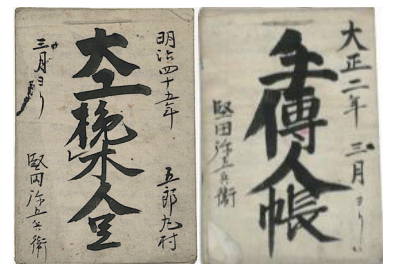 明治四十五年 五郎丸村
大工挽木人足
三月ヨリ 堅田弥五兵衛
大正二年 三月ヨリ
手傳人帳
堅田弥五兵衛